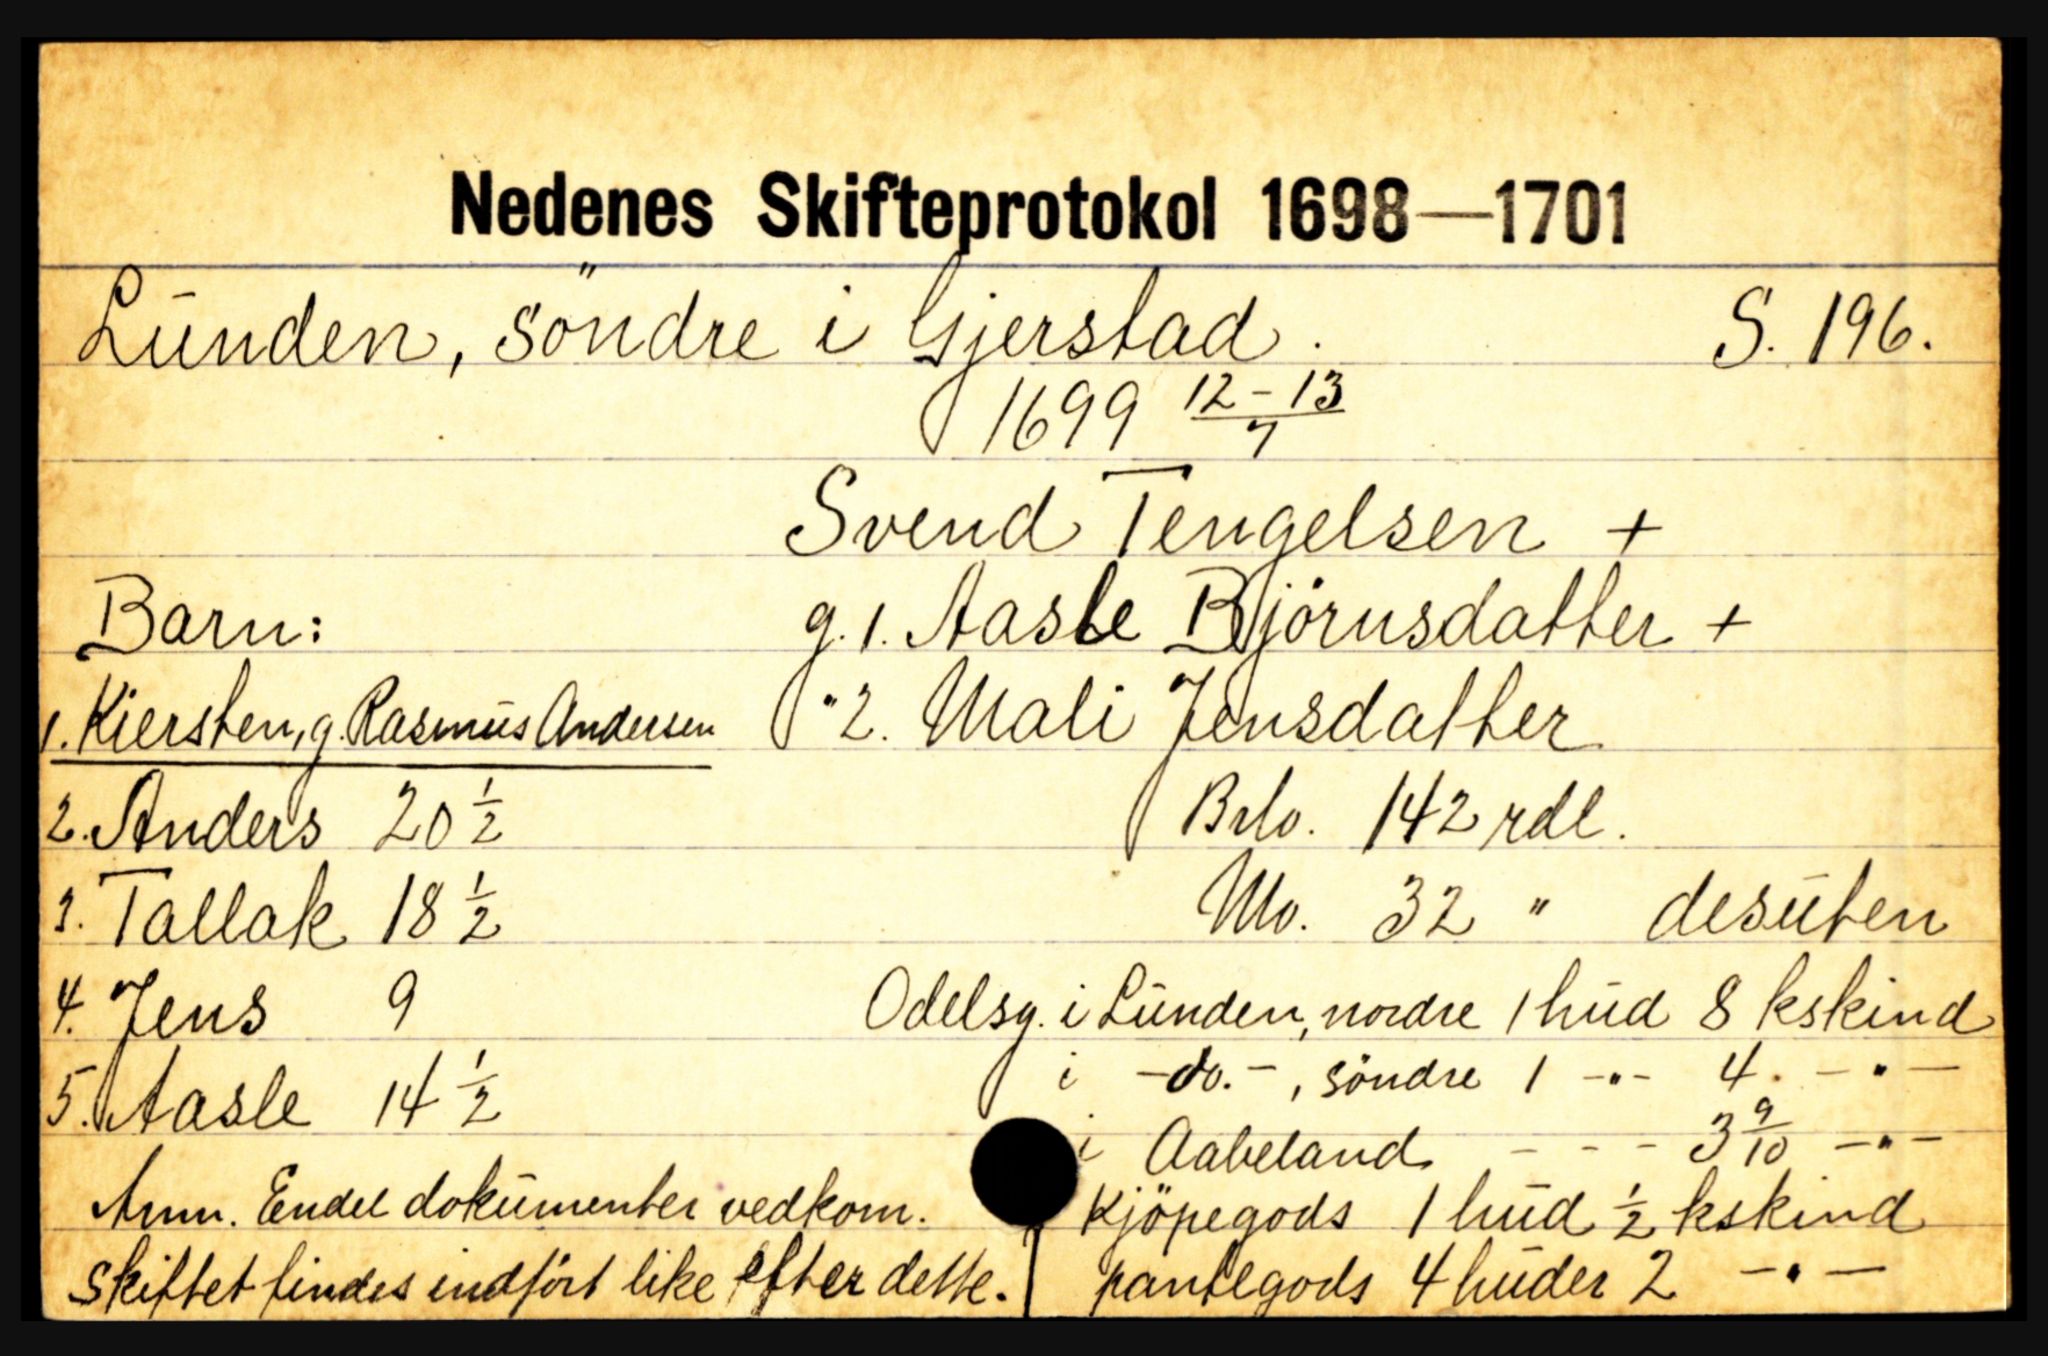 Nedenes Skifteprotokol 1698—1701
Lunden, söndre i Gjerstad. S. 196.
1699 12-13/7
Svend Tengelsen +
Barn: g. 1. Aasle Björnsdatter +
1. Kiersten, g. Rasmus Andersen " 2. Mali Jensdatter
2. Anders 20 1/2 Brlo. 142 rdl.
3. Tallak 18 1/2 Mo. 32 " desuten
4. Jens 9 Odelsg. i Lunden, nordre 1 hud 8 kskind
5. Aasle 14 1/2 i -do.-, söndre 1 -"- 4. -"-
i Aabeland - - - 3 9/10 -"-
Anm. Endel dokumenter vedkom. Kjöpegods 1 hud 1/2 kskind
skiftet findes indfört like efter dette. pantegods 4 huder 2 -"-